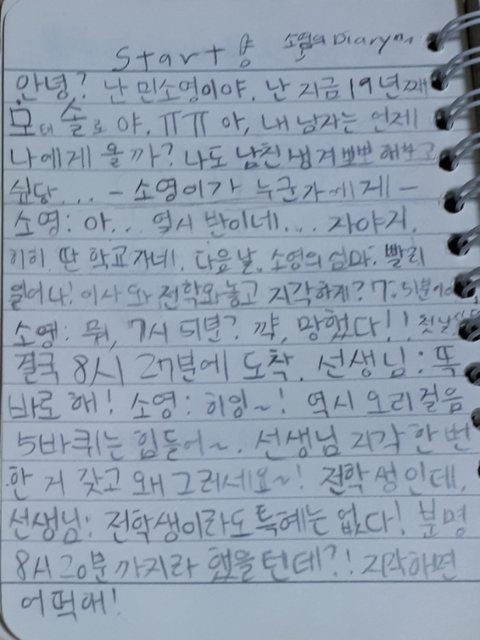 Start 용 소영의 Diary
안녕? 난 민소영이야. 난 지금 19년째
모태 솔로야. ㅠㅠ 아, 내 남자는 언제
나에게 올까? 나도 남친 생겨 뽀뽀 해보고
싶당... - 소영이가 누군가에게 -
소영: 아... 역시 밤이네... 자야지.
히히. 딴 학교 가네. 다음날, 소영의 엄마. 빨리
일어나! 이사 도와 전학와놓고 지각하게? 7:5분이야
소영: 뭐, 7시 5분? 꺅, 망했다!! 첫날
결국 8시 27분에 도착. 선생님: 똑
바로 해! 소영: 히잉~! 역시 오리걸음
5바퀴는 힘들어~. 선생님 지각 한 번
한 거 갖고 왜 그러세요~! 전학생인데,
선생님: 전학생이라도 특혜는 없다! 분명
8시 20분까지라 했을텐데?! 지각하면
어떡해!